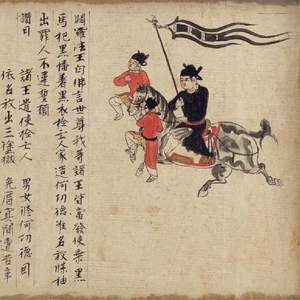 閻羅法王白佛言世尊我等諸王皆當發使乘黑
馬把黑幡著黑衣檢亡人家造何功德准名放牒抽
出罪人不違誓願
讚曰 諸王遣使檢亡人 男女修何功德因
依名放出三塗獄 免歷冥間遭苦辛